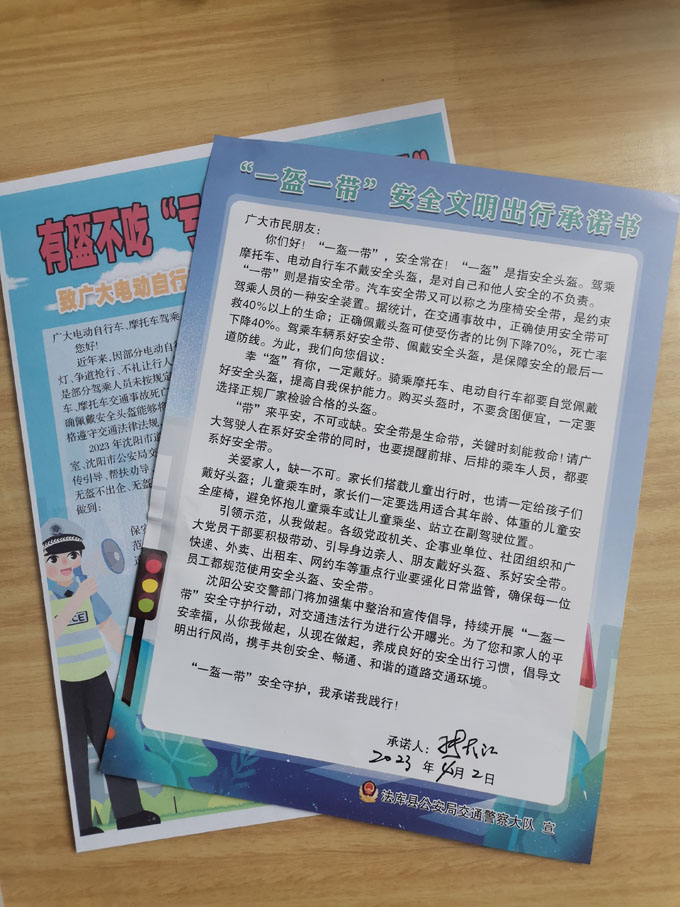 有盔不吃“亏
致广大电动自行
广大电动自行车、摩托车驾乘
您好！
近年来，因部分电动自
灯、争道抢行、不礼让行人
是部分驾乘人员未按规定
车、摩托车交通事故死亡
确佩戴安全头盔能够将
格遵守交通法律法规，
2023年沈阳市道
室、沈阳市公安局交
传引导、帮扶劝导、
无盔不出企、无盔
做到：
“一盔一带”安全文明出行承诺书
广大市民朋友：
你们好！“一盔一带”，安全常在！“一盔”是指安全头盔。驾乘
摩托车、电动自行车不戴安全头盔，是对自己和他人安全的不负责。
“一带”则是指安全带。汽车安全带又可以称之为座椅安全带，是约束
驾乘人员的一种安全装置。据统计，在交通事故中，正确使用安全带可
救40%以上的生命；正确佩戴头盔可使受伤者的比例下降70%，死亡率
下降40%。驾乘车辆系好安全带、佩戴安全头盔，是保障安全的最后一
道防线。为此，我们向您倡议：
幸“盔”有你，一定戴好。骑乘摩托车、电动自行车都要自觉佩戴
好安全头盔，提高自我保护能力。购买头盔时，不要贪图便宜，一定要
选择正规厂家检验合格的头盔。
“带”来平安，不可或缺。安全带是生命带，关键时刻能救命！请广
大驾驶人在系好安全带的同时，也要提醒前排、后排的乘车人员，都要
系好安全带。
关爱家人，缺一不可。家长们搭载儿童出行时，也请一定给孩子们
戴好头盔；儿童乘车时，家长们一定要选用适合其年龄、体重的儿童安
全座椅，避免怀抱儿童乘车或让儿童乘坐、站立在副驾驶位置。
引领示范，从我做起。各级党政机关、企事业单位、社团组织和广
大党员干部要积极带动、引导身边亲人、朋友戴好头盔、系好安全带。
快递、外卖、出租车、网约车等重点行业要强化日常监管，确保每一位
员工都规范使用安全头盔、安全带。
沈阳公安交警部门将加强集中整治和宣传倡导，持续开展“一盔一
带”安全守护行动，对交通违法行为进行公开曝光。为了您和家人的平
安幸福，从你我做起，从现在做起，养成良好的安全出行习惯，倡导文
明出行风尚，携手共创安全、畅通、和谐的道路交通环境。
“一盔一带”安全守护，我承诺我践行！
承诺人：
2023年4月2日
法库县公安局交通警察大队 宣